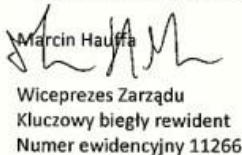 Marcin Hauffa
Wiceprezes Zarządu
Kluczowy biegły rewident
Numer ewidencyjny 11266